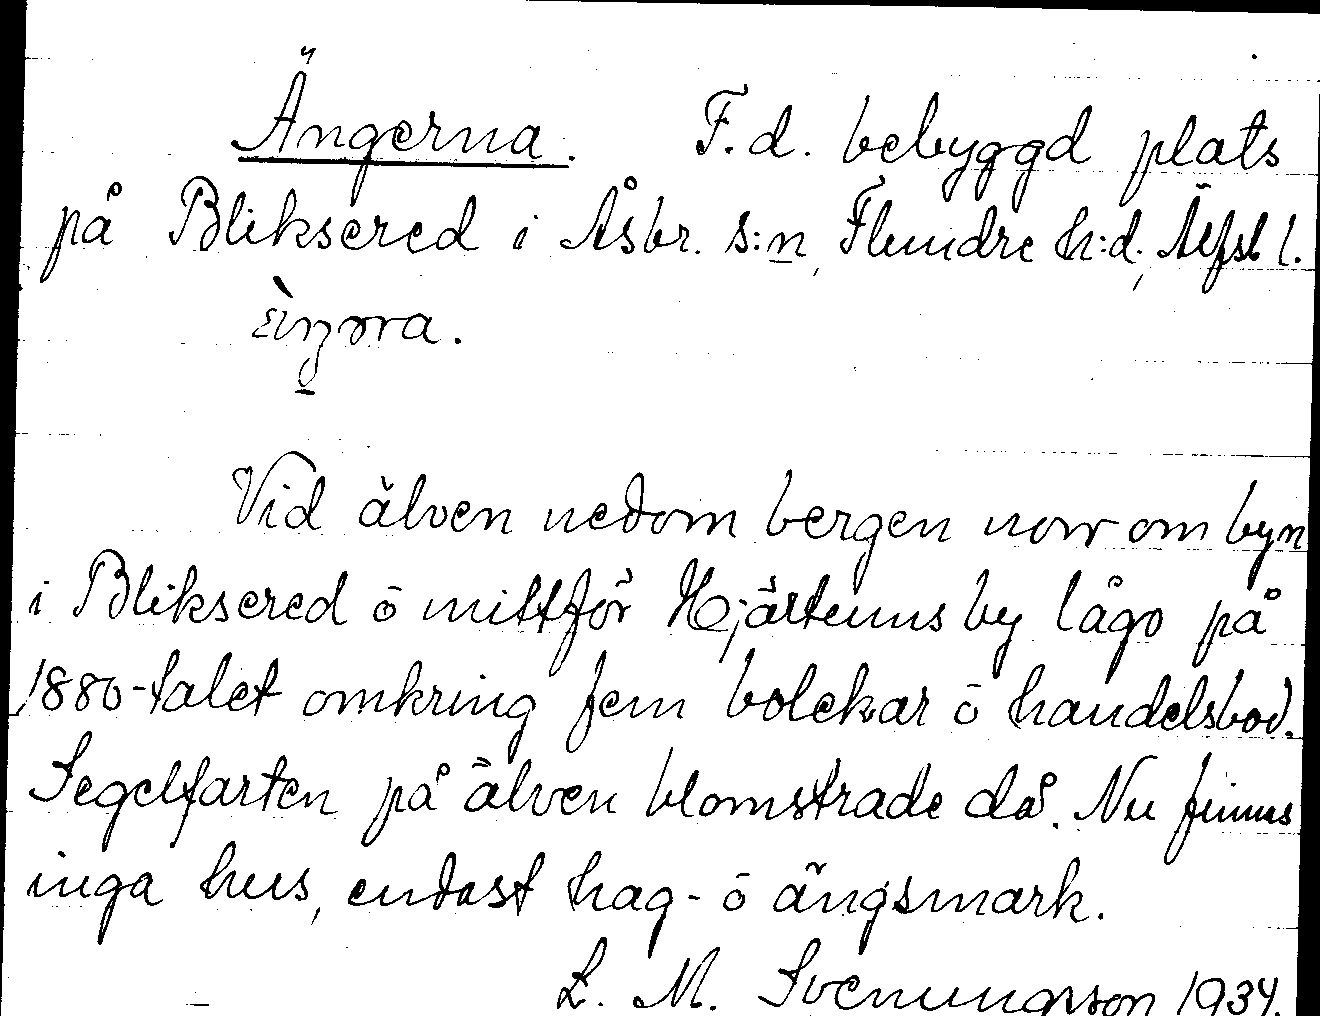 Ängerna. F.d. bebyggd plats
på Bliksered i Åsbr. s:n, Flundre h:d, Älfsb l.
Vid älven nedom bergen norr om byn
i Bliksered ō mittför Hjärtums by lågo på
1880-talet omkring fem bolckar ō handelsbod.
Segelfarten på älven blomstrade då. Nu finns
inga hus, endast hag- ō ängsmark.
L. M. Svenungsson 1934.